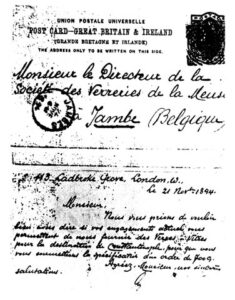 UNION POSTALE UNIVERSELLE
POST CARD-GREAT BRITAIN & IRELAND
(GRANDE BRETAGNE ET IRLANDE)
THE ADDRESS ONLY TO BE WRITTEN ON THIS SIDE.
Monsieur le Directeur de la
Société des Verreries de la Meuse
à Jambe (Belgique)
JAMBES
113. Ladbroke Grove, London. W.
le 21 Novre 1894.
Monsieur,
Nous vous prions de vouloir
bien nous dire si vos engagements actuels vous
permettent de nous fournir des Verres à Vitres
pour la destination de Constantinople, pour que nous
vous remettions la spécification d'un ordre de
Agréez, Monsieur, nos sincères
salutations.